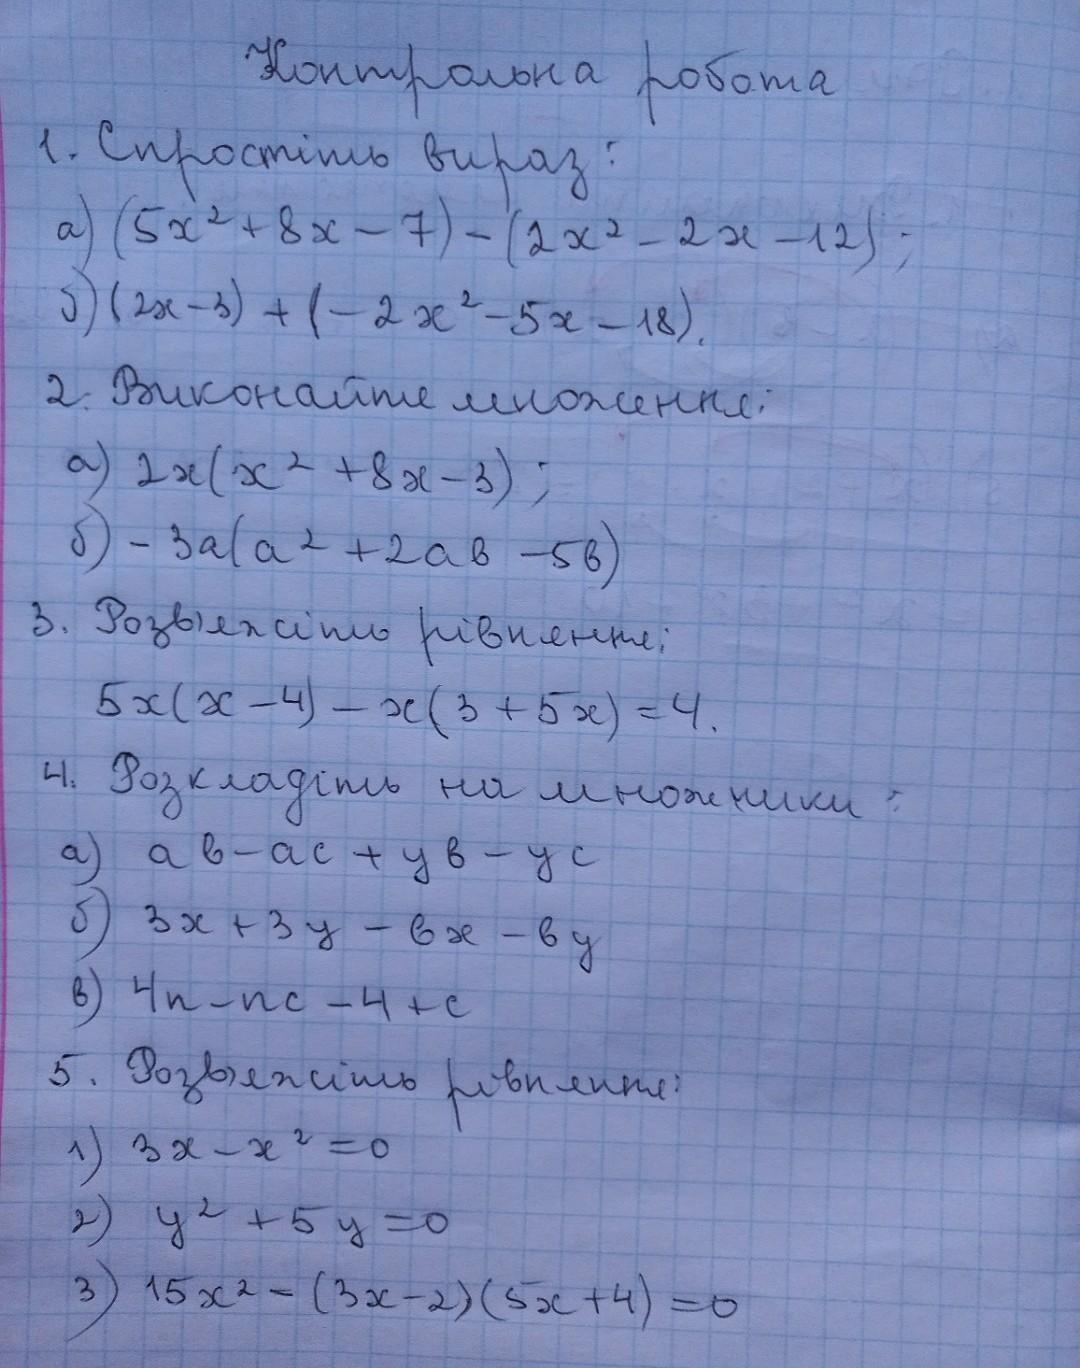 Контрольна робота
1. Спростіть вираз:
а) (5x² + 8x - 7) - (2x² - 2x - 12);
б) (2x - 3) + (-2x² - 5x - 18).
2. Виконайте множення:
а) 2x(x² + 8x - 3);
б) -3a(a² + 2ab - 5b)
3. Розв'яжіть рівняння:
5x(x - 4) - x(3 + 5x) = 4.
4. Розкладіть на множники:
а) ab - ac + yb - yc
б) 3x + 3y - bx - by
в) 4n - nc - 4 + c
5. Розв'яжіть рівняння:
1) 3x - x² = 0
2) y² + 5y = 0
3) 15x² - (3x - 2)(5x + 4) = 0